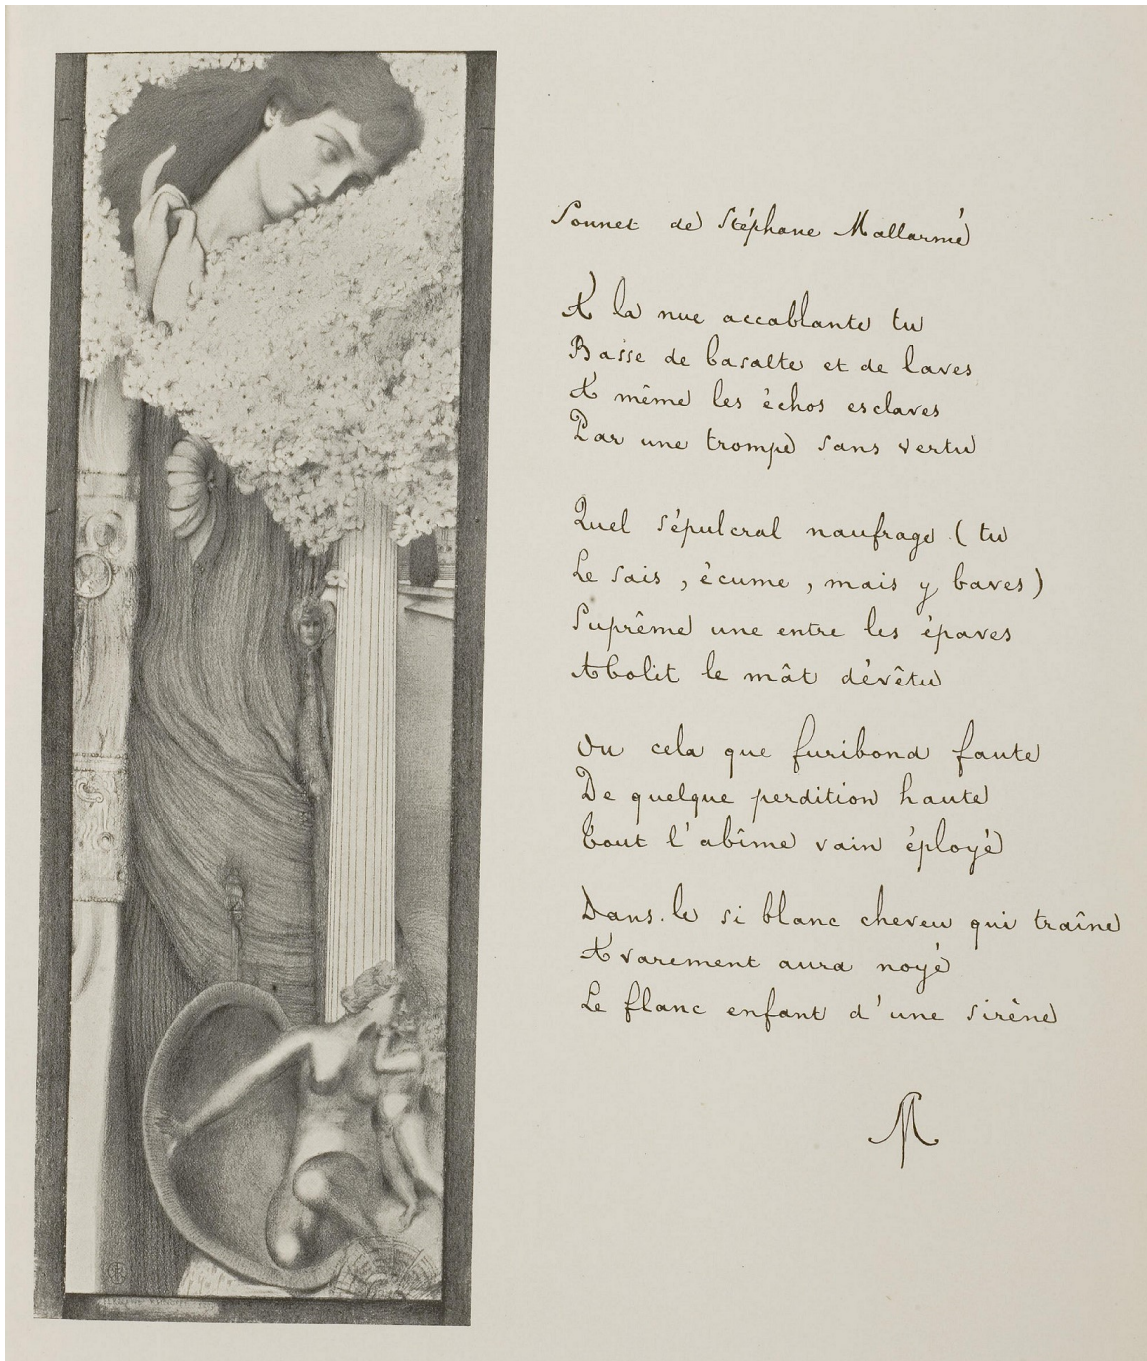 Sonnet de Stéphane Mallarmé
A la nue accablante tu
Basse de basalte et de laves
A même les échos esclaves
Par une trompe sans vertu
Quel sépulcral naufrage (tu
Le sais, écume, mais y baves)
Suprême une entre les épaves
Abolit le mât dévêtu
Ou cela que furibond faute
De quelque perdition haute
Tout l'abîme vain éployé
Dans le si blanc cheveu qui traîne
Avarement aura noyé
Le flanc enfant d'une sirène
M